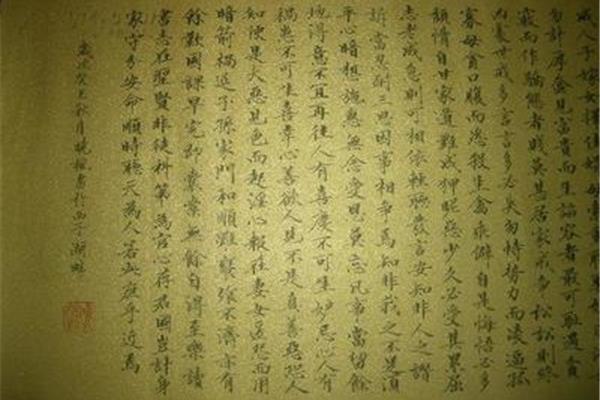 嫁女擇佳婿毋索
勿計厚奩見富貴而生諂容者最可恥遇貧
窮而作驕態者賤莫甚居家戒多訟訟則終
凶處世戒多言言多必失勿恃勢力而凌逼孤
寡毋貪口腹而恣殺生禽乖僻自是悔悟必多
頹惰自甘家道難成狎昵惡少久必受其累屈
志老成急則可相依輕聽發言安知非人之譖
訴當忍耐三思因事相爭焉知非我之不是須
平心暗想施惠無念受恩莫忘凡事當留餘
地得意不宜再往人有喜慶不可生妒忌心人有
禍患不可生喜幸心善欲人見不是真善惡恐人
知便是大惡見色而起淫心報在妻女匿怨而用
暗箭禍延子孫家門和順雖饔飧不濟亦有
餘歡國課早完即囊橐無餘自得至樂讀
書志在聖賢非徒科第為官心存君國豈計身
家守分安命順時聽天為人若此庶乎近焉
歲次癸巳秋月曉楓書於西子湖畔